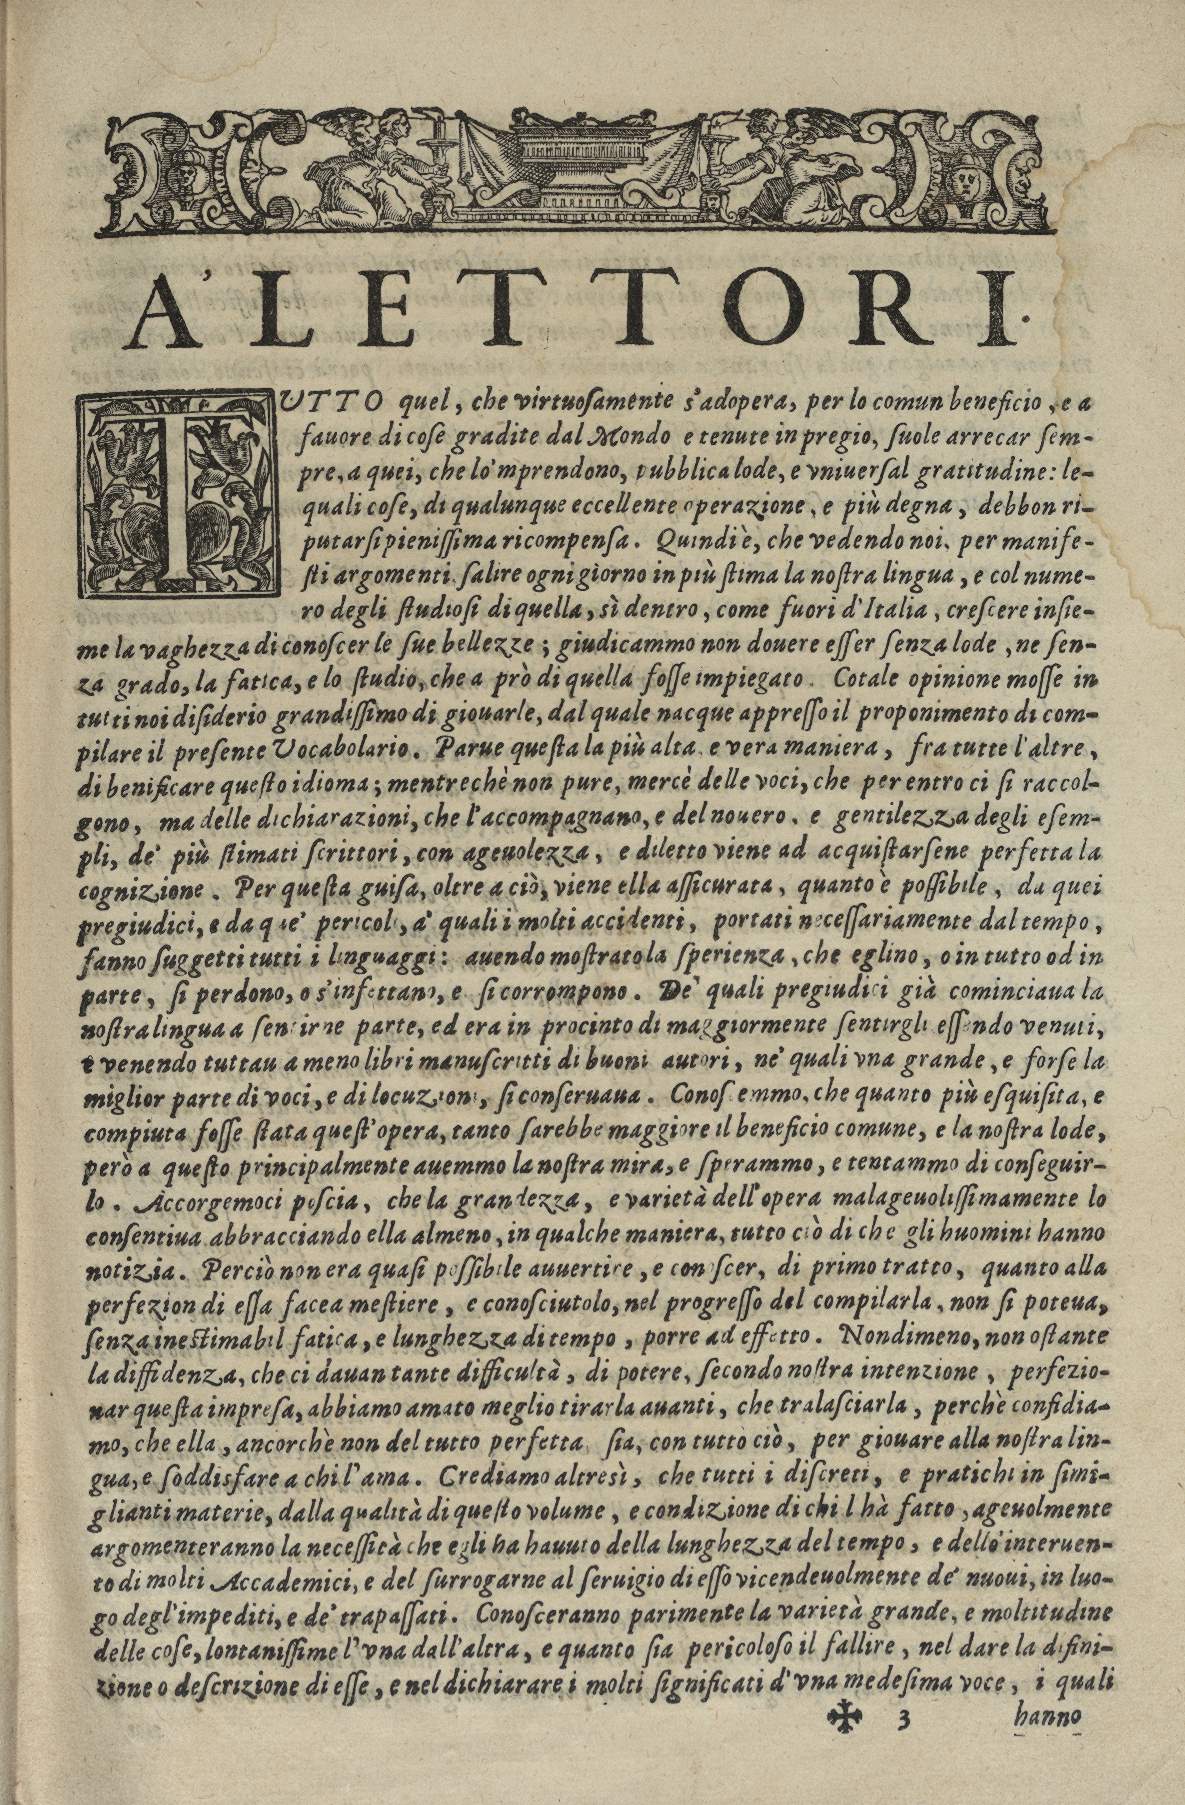 A' LETTORI.
TUTTO quel, che virtuosamente s'adopera, per lo comun beneficio, e a
fauore di cose gradite dal Mondo e tenute in pregio, suole arrecar sem-
pre, a quei, che lo 'mprendono, pubblica lode, e vniuersal gratitudine: le-
quali cose, di qualunque eccellente operazione, e più degna, debbon ri-
putarsi pienissima ricompensa. Quindi è, che vedendo noi, per manife-
sti argomenti salire ogni giorno in più stima la nostra lingua, e col nume-
ro degli studiosi di quella, sì dentro, come fuori d'Italia, crescere insie-
me la vaghezza di conoscer le sue bellezze; giudicammo non douere esser senza lode, ne sen-
za grado, la fatica, e lo studio, che a prò di quella fosse impiegato. Cotale opinione mosse in
tutti noi disiderio grandissimo di giouarle, dal quale nacque appresso il proponimento di com-
pilare il presente Vocabolario. Parue questa la più alta, e vera maniera, fra tutte l'altre,
di benificare questo idioma; mentrechè non pure, mercè delle voci, che per entro ci si raccol-
gono, ma delle dichiarazioni, che l'accompagnano, e del nouero, e gentilezza degli esem-
pli, de' più stimati scrittori, con ageuolezza, e diletto viene ad acquistarsene perfetta la
cognizione. Per questa guisa, oltre a ciò, viene ella assicurata, quanto è possibile, da quei
pregiudici, e da que' pericoli, a' quali i molti accidenti, portati necessariamente dal tempo,
fanno suggetti tutti i linguaggi: auendo mostrato la sperienza, che eglino, o in tutto od in
parte, si perdono, o s'infettano, e si corrompono. De' quali pregiudici già cominciaua la
nostra lingua a sentirne parte, ed era in procinto di maggiormente sentirgli essendo venuti,
e venendo tuttau a meno libri manuscritti di buoni autori, ne' quali vna grande, e forse la
miglior parte di voci, e di locuzioni, si conseruaua. Conoscemmo, che quanto più esquisita, e
compiuta fosse stata quest'opera, tanto sarebbe maggiore il beneficio comune, e la nostra lode,
però a questo principalmente auemmo la nostra mira, e sperammo, e tentammo di conseguir-
lo. Accorgemoci poscia, che la grandezza, e varietà dell'opera malageuolissimamente lo
consentiua abbracciando ella almeno, in qualche maniera, tutto ciò di che gli huomini hanno
notizia. Perciò non era quasi possibile auuertire, e conoscer, di primo tratto, quanto alla
perfezion di essa facea mestiere, e conosciutolo, nel progresso del compilarla, non si poteua,
senza inestimabil fatica, e lunghezza di tempo, porre ad effetto. Nondimeno, non ostante
la diffidenza, che ci dauan tante difficultà, di potere, secondo nostra intenzione, perfezio-
nar questa impresa, abbiamo amato meglio tirarla auanti, che tralasciarla, perchè confidia-
mo, che ella, ancorchè non del tutto perfetta sia, con tutto ciò, per giouare alla nostra lin-
gua, e soddisfare a chi l'ama. Crediamo altresì, che tutti i discreti, e pratichi in simi-
glianti materie, dalla qualità di questo volume, e condizione di chi l hà fatto, ageuolmente
argomenteranno la necessità che egli ha hauuto della lunghezza del tempo, e dello 'nteruen-
to di molti Accademici, e del surrogarne al seruigio di esso vicendeuolmente de' nuoui, in luo-
go degl'impediti, e de' trapassati. Conosceranno parimente la varietà grande, e moltitudine
delle cose, lontanissime l'vna dall'altra, e quanto sia pericoloso il fallire, nel dare la difini-
zione o descrizione di esse, e nel dichiarare i molti significati d'vna medesima voce, i quali
✠ 3 hanno